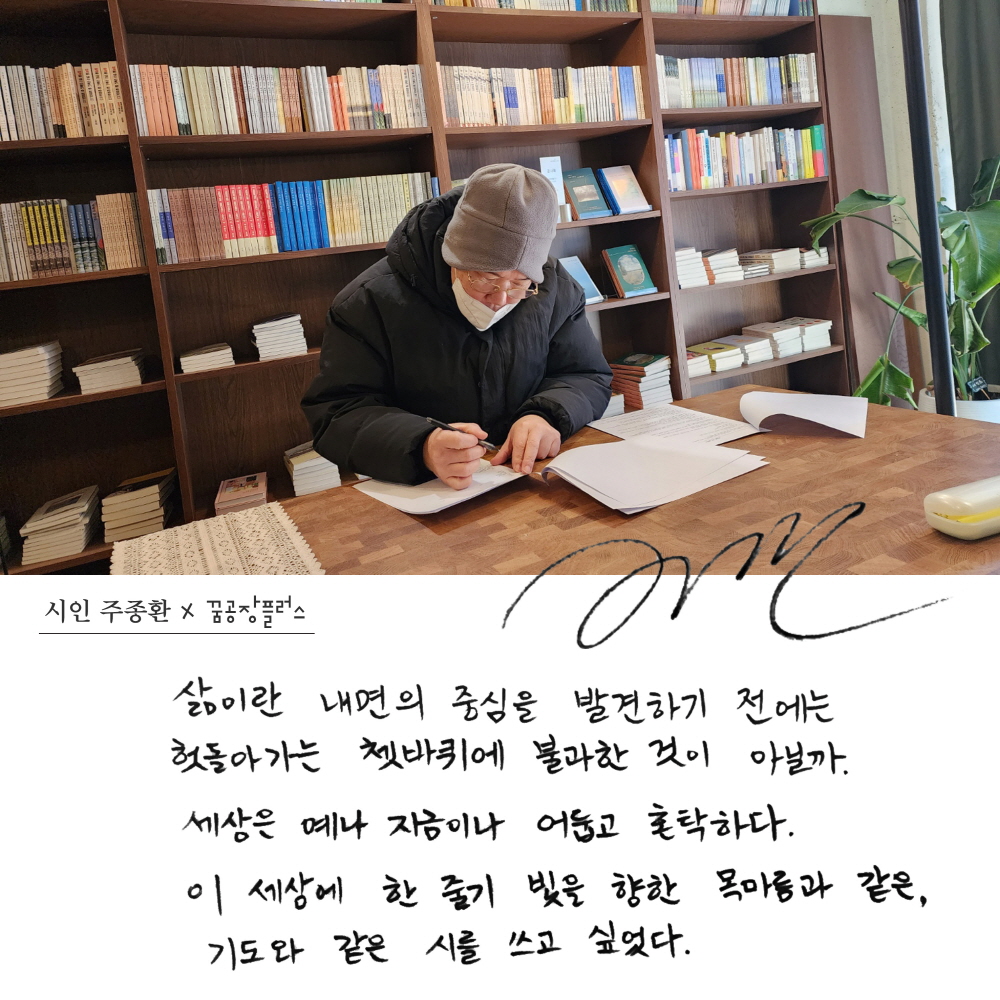 시인 주종환 x 꿈공장플러스
삶이란 내면의 중심을 발견하기 전에는
헛돌아가는 쳇바퀴에 불과한 것이 아닐까.
세상은 예나 지금이나 어둡고 혼탁하다.
이 세상에 한 줄기 빛을 향한 목마름과 같은,
기도와 같은 시를 쓰고 싶었다.